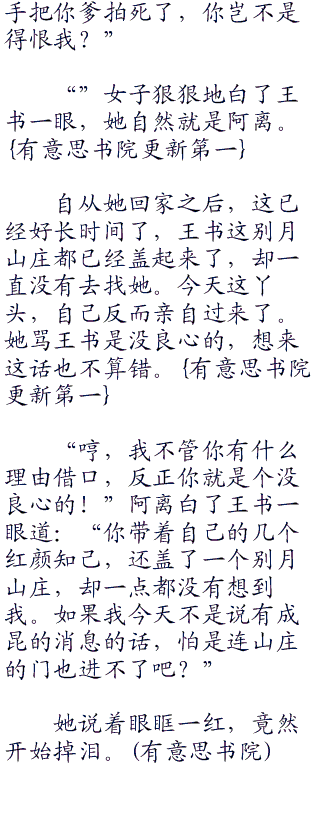 手把你爹拍死了，你岂不是
得恨我？”
“”女子狠狠地白了王
书一眼，她自然就是阿离。
{有意思书院更新第一}
自从她回家之后，这已
经好长时间了，王书这别月
山庄都已经盖起来了，却一
直没有去找她。今天这丫
头，自己反而亲自过来了。
她骂王书是没良心的，想来
这话也不算错。{有意思书院
更新第一}
“哼，我不管你有什么
理由借口，反正你就是个没
良心的！”阿离白了王书一
眼道：“你带着自己的几个
红颜知己，还盖了一个别月
山庄，却一点都没有想到
我。如果我今天不是说有成
昆的消息的话，怕是连山庄
的门也进不了吧？”
她说着眼眶一红，竟然
开始掉泪。(有意思书院)